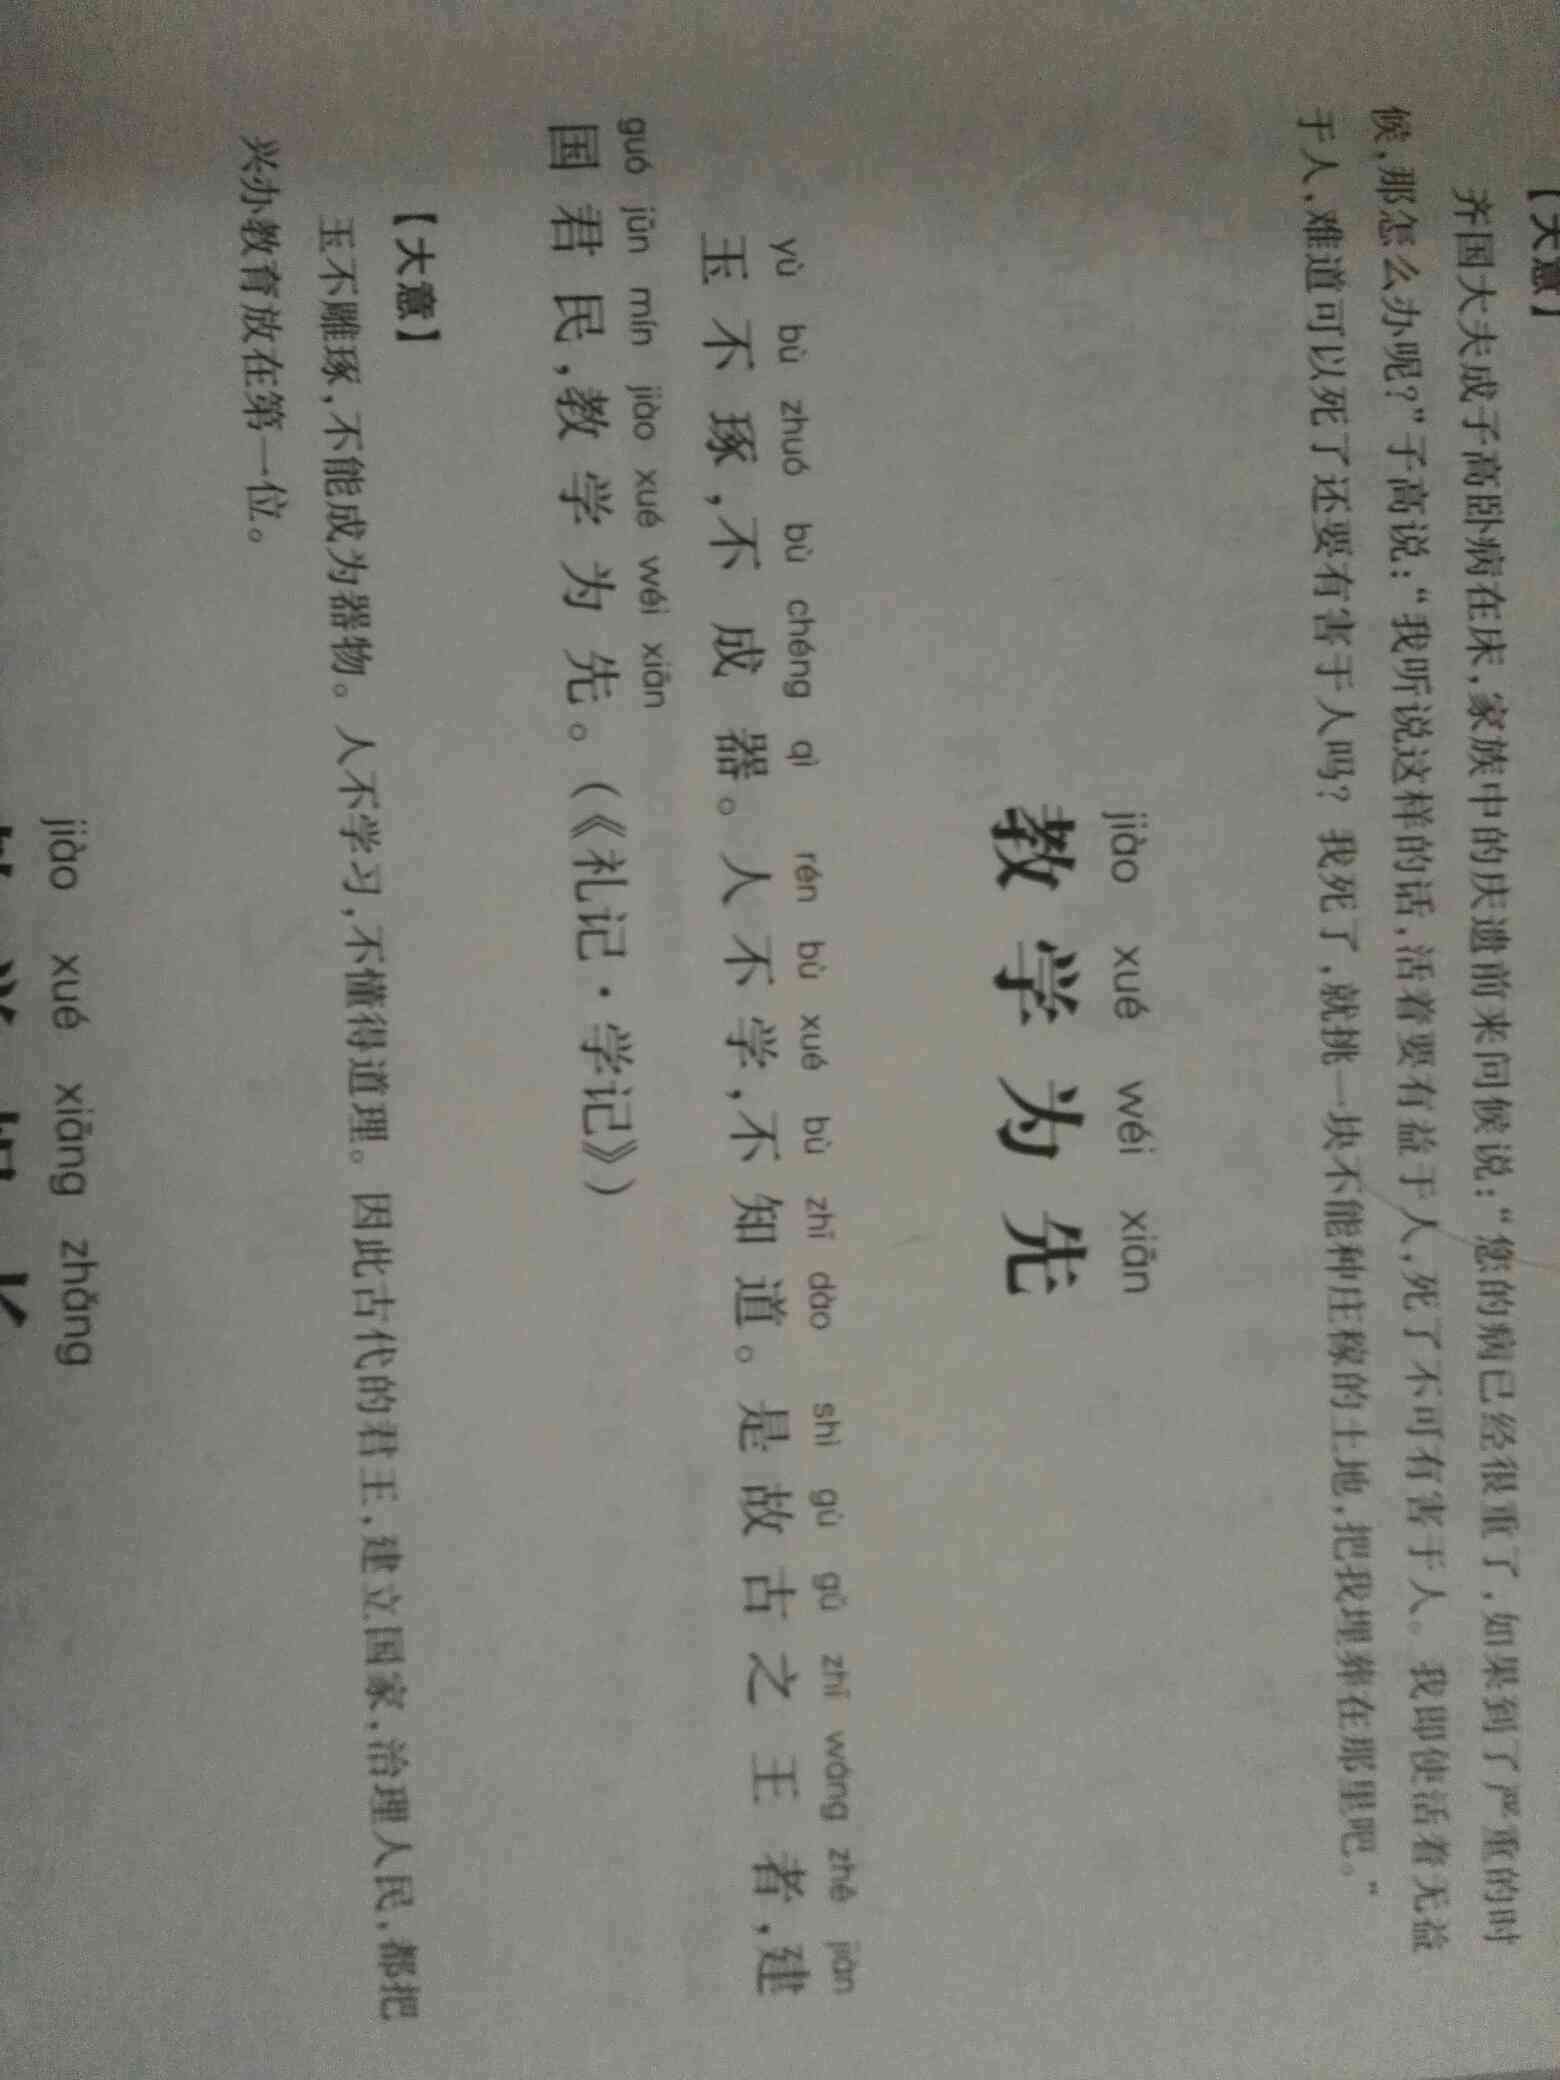 【大意】
齐国大夫成子高卧病在床,家族中的庆遗前来问候说:“您的病已经很重了,如果到了严重的时
候,那怎么办呢?”子高说:“我听说这样的话,活着要有益于人,死了不可有害于人。我即使活着无益
于人,难道可以死了还要有害于人吗? 我死了,就挑一块不能种庄稼的土地,把我埋葬在那里吧。”
jiào xué wéi xiān
教学为先
yù bù zhuó bù chéng qì rén bù xué bù zhī dào shì gù gǔ zhī wáng zhě jiàn
玉不琢,不成器。人不学,不知道。是故古之王者,建
guó jūn mín jiào xué wéi xiān
国君民,教学为先。(《礼记·学记》)
【大意】
玉不雕琢,不能成为器物。人不学习,不懂得道理。因此古代的君王,建立国家,治理人民,都把
兴办教育放在第一位。
jiào xué xiāng zhǎng